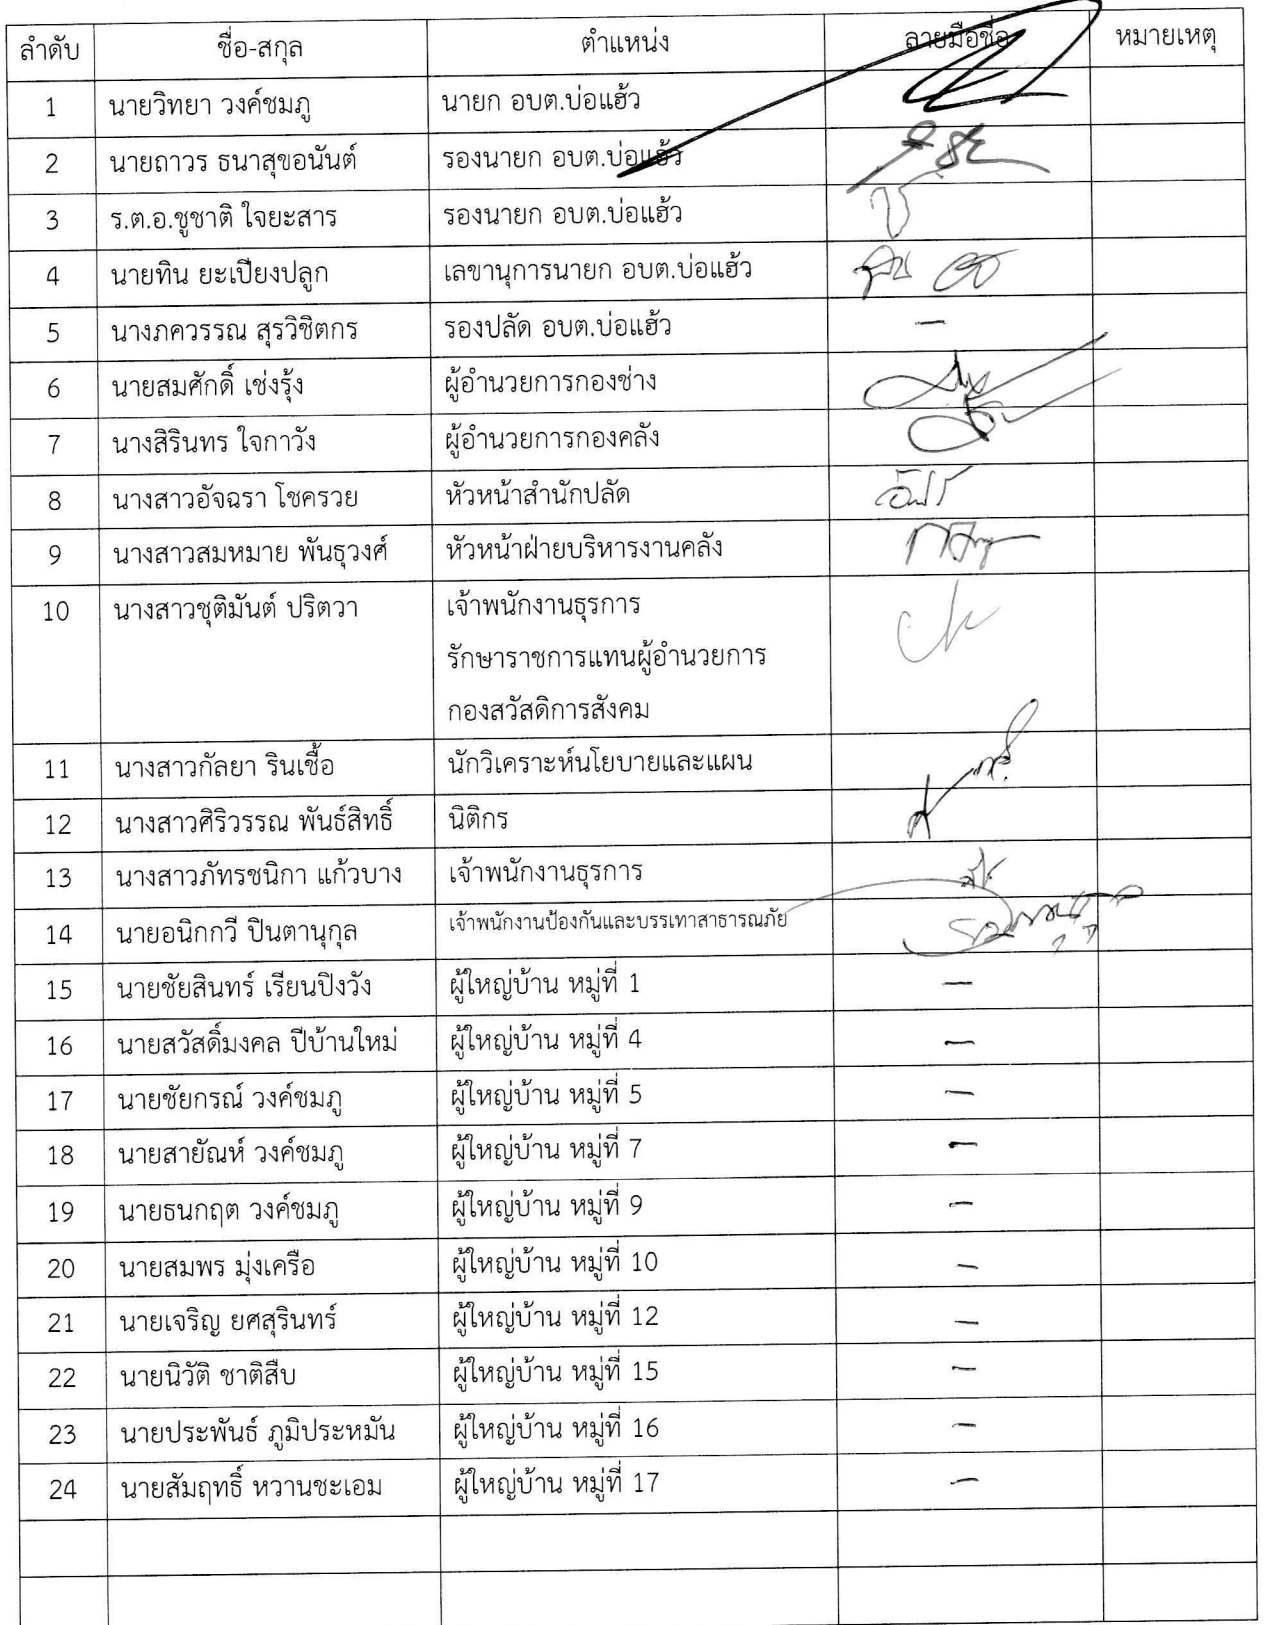 ลำดับ ชื่อ-สกุล ตำแหน่ง ลายมือชื่อ หมายเหตุ
1 นายวิทยา วงค์ชมภู นายก อบต.บ่อแฮ้ว
2 นายถาวร ธนาสุขอนันต์ รองนายก อบต.บ่อแฮ้ว
3 ร.ต.อ.ชูชาติ ใจยะสาร รองนายก อบต.บ่อแฮ้ว
4 นายทิน ยะเปียงปลูก เลขานุการนายก อบต.บ่อแฮ้ว
5 นางภควรรณ สุรวิชิตกร รองปลัด อบต.บ่อแฮ้ว –
6 นายสมศักดิ์ เช่งรุ้ง ผู้อำนวยการกองช่าง
7 นางสิรินทร ใจกาวัง ผู้อำนวยการกองคลัง
8 นางสาวอัจฉรา โชครวย หัวหน้าสำนักปลัด
9 นางสาวสมหมาย พันธุวงศ์ หัวหน้าฝ่ายบริหารงานคลัง
10 นางสาวชุติมันต์ ปริตวา เจ้าพนักงานธุรการ
รักษาราชการแทนผู้อำนวยการ
กองสวัสดิการสังคม
11 นางสาวกัลยา รินเชื้อ นักวิเคราะห์นโยบายและแผน
12 นางสาวศิริวรรณ พันธ์สิทธิ์ นิติกร
13 นางสาวภัทรชนิกา แก้วบาง เจ้าพนักงานธุรการ
14 นายอนิกกวี ปินตานุกุล เจ้าพนักงานป้องกันและบรรเทาสาธารณภัย
15 นายชัยสินทร์ เรียนปิงวัง ผู้ใหญ่บ้าน หมู่ที่ 1 –
16 นายสวัสดิ์มงคล ปีบ้านใหม่ ผู้ใหญ่บ้าน หมู่ที่ 4 –
17 นายชัยกรณ์ วงค์ชมภู ผู้ใหญ่บ้าน หมู่ที่ 5 –
18 นายสายัณห์ วงค์ชมภู ผู้ใหญ่บ้าน หมู่ที่ 7 –
19 นายธนกฤต วงค์ชมภู ผู้ใหญ่บ้าน หมู่ที่ 9 –
20 นายสมพร มุ่งเครือ ผู้ใหญ่บ้าน หมู่ที่ 10 –
21 นายเจริญ ยศสุรินทร์ ผู้ใหญ่บ้าน หมู่ที่ 12 –
22 นายนิวัติ ชาติสืบ ผู้ใหญ่บ้าน หมู่ที่ 15 –
23 นายประพันธ์ ภูมิประหมัน ผู้ใหญ่บ้าน หมู่ที่ 16 –
24 นายสัมฤทธิ์ หวานชะเอม ผู้ใหญ่บ้าน หมู่ที่ 17 –